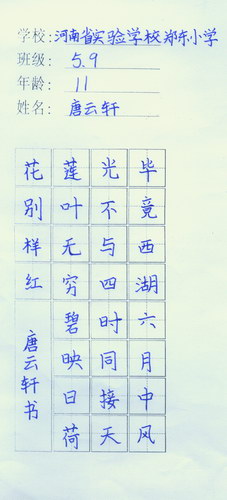 学校:河南省实验学校郑东小学
班级: 5.9
年龄: 11
姓名: 唐云轩
毕竟西湖六月中风
光不与四时同接天
莲叶无穷碧映日荷
花别样红
唐云轩书